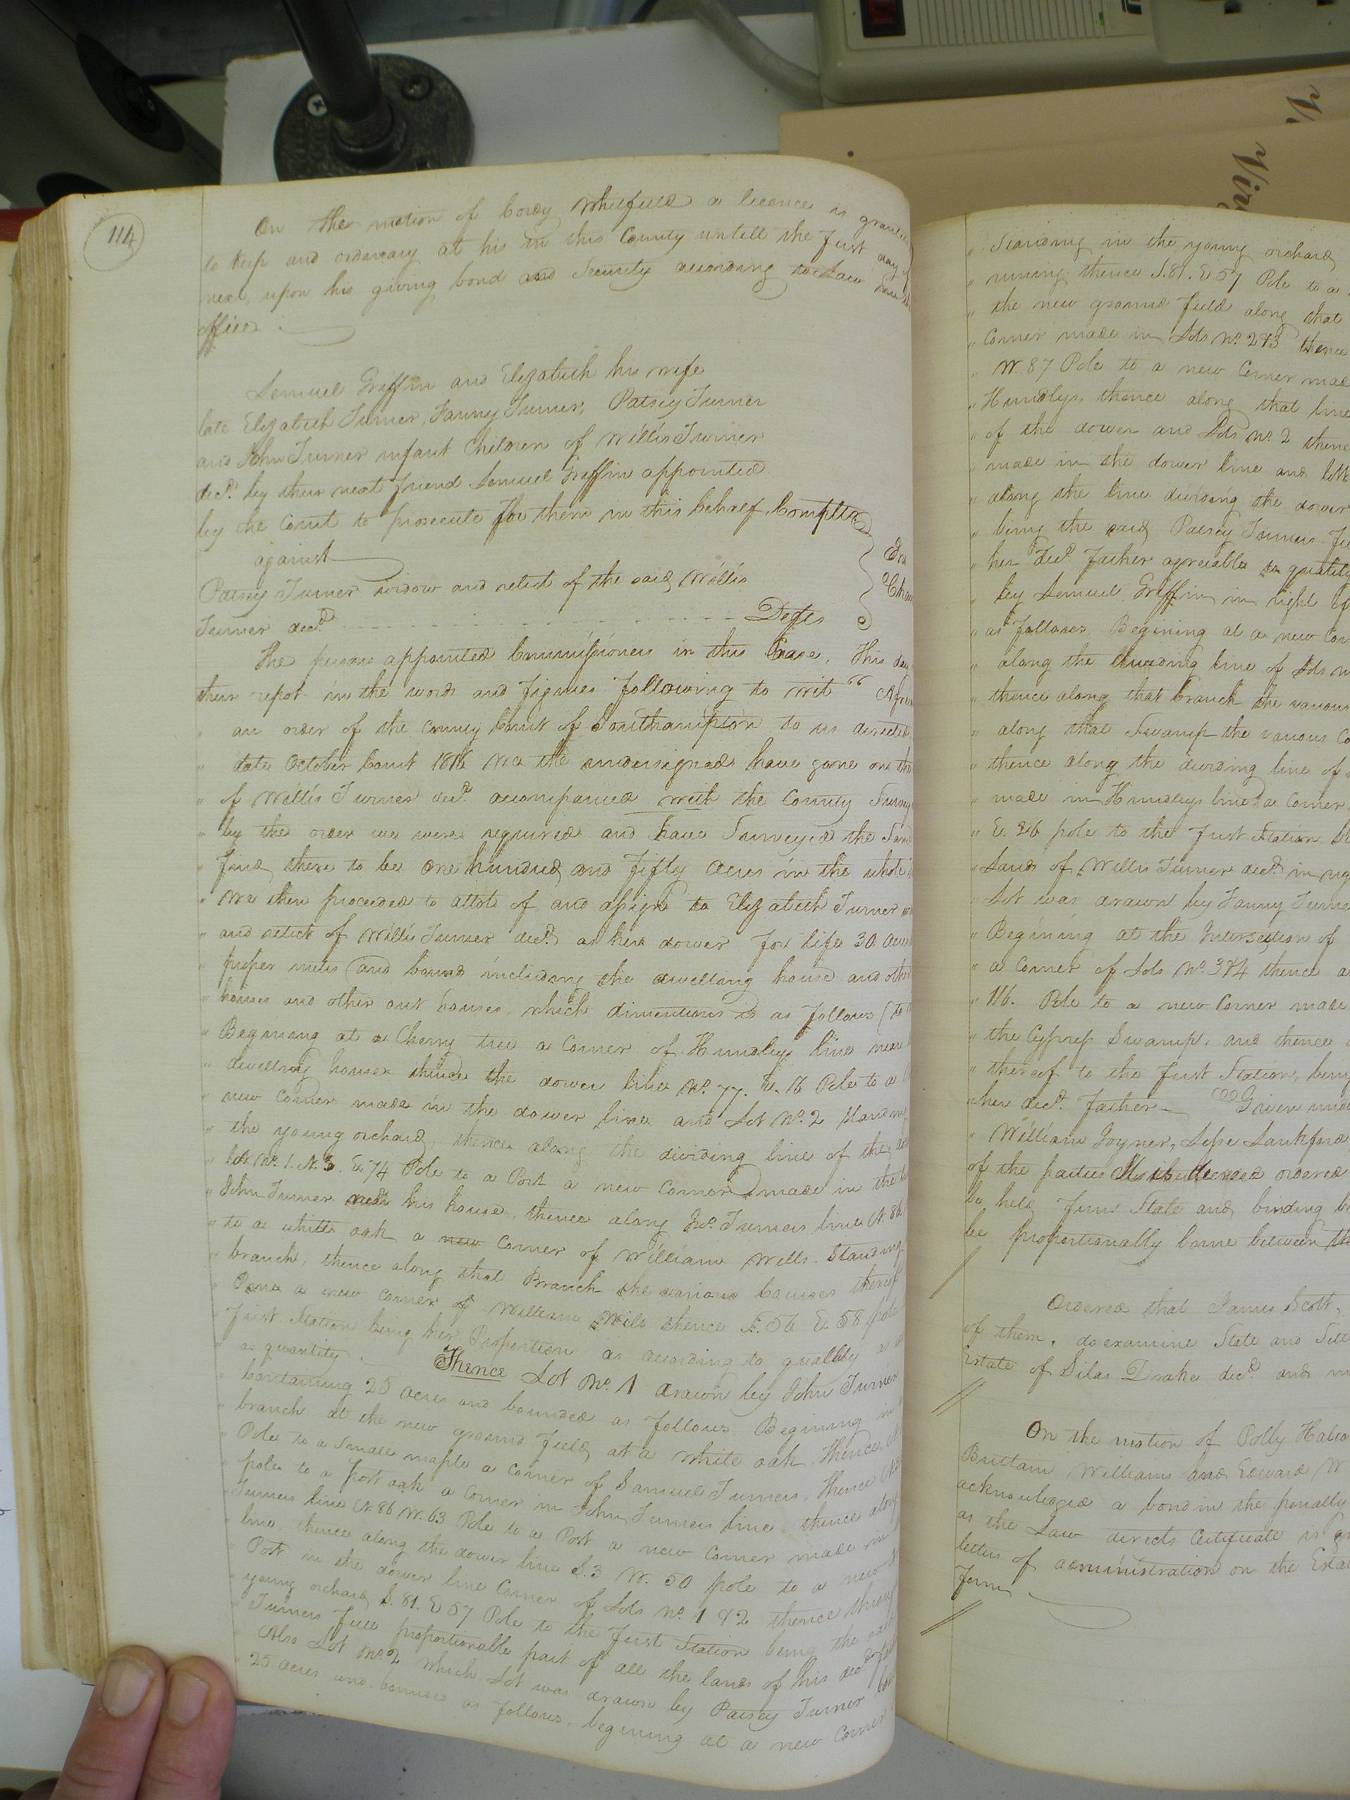 114
On the motion of Cordy Whitfield a licence is granted
to keep and ordinary at his in this County untill the first day of
next, upon his giving bond and Security according to Law
officer
Lemuel Griffin and Elizabeth his wife
late Elizabeth Turner, Fanny Turner, Patsey Turner
and John Turner infant Children of Willis Turner
decd. by their next friend Lemuel Griffin appointed
by the Court to prosecute for them in this behalf Complts
against
Patsey Turner widow and relict of the said Willis
Turner decd. Defts
The persons appointed Commissioners in this Case, This day
their repot in the words and figures following to wit "
" an order of the County Court of Southampton to us directed
" date October Court 1816 We the undersigned have gone on the
" of Willis Turner decd. accompanied with the County
" by the order we were required and have Surveyed the
" find there to be one hundred and fifty acres in the whole
" We then proceeded to allote of and assign to Elizabeth Turner
" and relict of Willis Turner decd. as her dower for life 30 acres
" proper metes and bounds including the dwelling house and other
" houses and other out houses, which dimentions is as follows (to
" Begining at a Cherry tree a Corner of Hundleys line near
" dwelling house thence the dower line No. 77. E. 16 Pole to a
" new Corner made in the dower line and Lot No. 2 standing
" the young orchard, thence along the dividing line of the
" lot No. 1. N. 3. E. 74 Pole to a Post a new Corner made in the
" John Turner near his house, thence along Jno. Turners line N. 86
" to a white oak a new Corner of William Wells. Standing
" branch, thence along that Branch the various Courses thereof
" a new Corner of William Wells thence S. 56 E. 58 pole
" first Station being her Proportion as according to quallity
" as quantity. Thence Lot No. 1 drawn by John Turner
" Containing 25 acres and bounded as follows. Begining in
" branch at the new ground field, at a white oak, thence
" Pole to a small maple a corner of Samuel Turners, thence
" pole to a post oak a Corner in John Turners line, thence along
" Turners line N. 86 W. 63 Pole to a Post a new Corner made in
" line, thence along the dower line S. 3 W. 50 pole to a new
" Post in the dower line Corner of Lots No. 1 & 2 thence through
" young orchard S. 81. E 57 Pole to the first Station being the said
" Turners full proportionable part of all the lands of his decd
" Also Lot No. 2 which Lot was drawn by Patsey Turner
" 25 acres and bounded as follows, begining at a new Corner
" Standing in the young orchard
" runing thence S. 81. E 57 Pole to a
" the new ground field along that
" Corner made in Lots No. 2 & 3 thence
" W. 87 Pole to a new Corner made
" Hundlys thence along that line
" of the dower and Lots No. 2 thence
" made in the dower line and
" along the line dividing the dower
" being the said Patsey Turners
" her decd. Father agreeable to quality
" by Lemuel Griffin in right of
" as follows Begining at a new Corner
" along the dividing line of Lots
" thence along that branch the various
" along that Swamp the various
" thence along the dividing line of
" made in Hundleys line a Corner
" E. 26 pole to the first Station
" Lands of Willis Turner decd. in
" Lot was drawn by Fanny Turner
" Begining at the Intersection of
" a Corner of Lots No. 3 & 4 thence
" 116. Pole to a new Corner made
" the Cypress Swamp, and thence
" thereof to the first Station, being
" her decd. father Given under
" William Joyner, Jesse Lankford
of the parties ordered
be held firm State and binding
be proportionally borne between the
Ordered that James Scott,
of them, do examine State and
Estate of Silas Drake decd. and
On the motion of Polly
Brittain Williams and Edward W
acknowledged a bond in the penalty
as the Law directs Certificate is
letters of administration on the
form